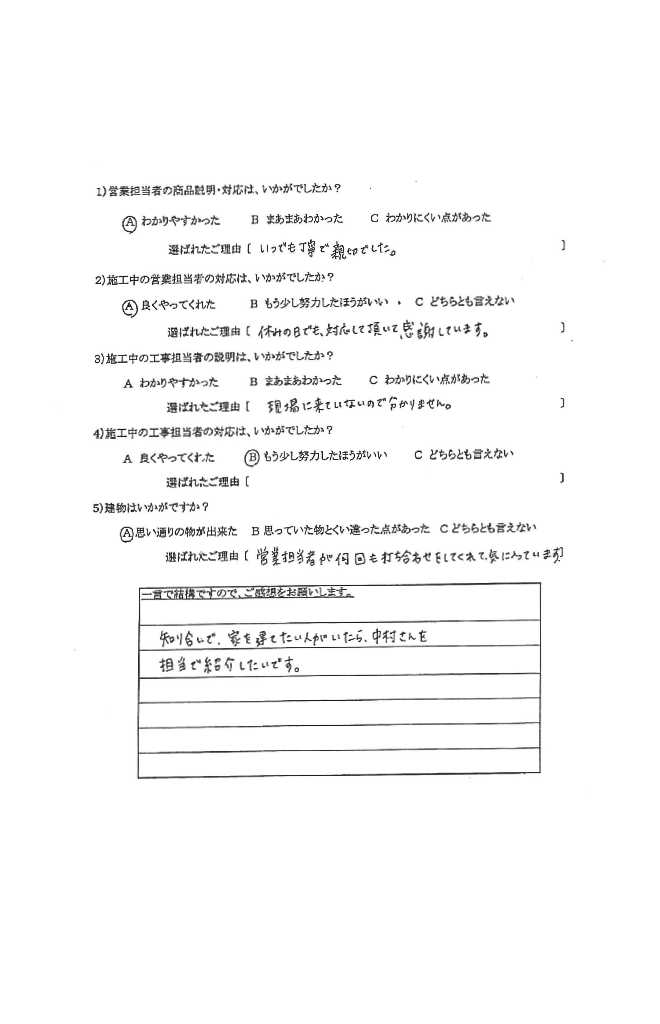 1)営業担当者の商品説明・対応は、いかがでしたか？
Ⓐ わかりやすかった B まあまあわかった C わかりにくい点があった
選ばれたご理由〔 いつでも丁寧で親切でした。 〕
2)施工中の営業担当者の対応は、いかがでしたか？
Ⓐ 良くやってくれた B もう少し努力したほうがいい ・ C どちらとも言えない
選ばれたご理由〔 休みの日でも、対応して頂いて感謝しています。 〕
3)施工中の工事担当者の説明は、いかがでしたか？
A わかりやすかった B まあまあわかった C わかりにくい点があった
選ばれたご理由〔 現場に来ていないので分かりません。 〕
4)施工中の工事担当者の対応は、いかがでしたか？
A 良くやってくれた Ⓑ もう少し努力したほうがいい C どちらとも言えない
選ばれたご理由〔 〕
5)建物はいかがですか？
Ⓐ 思い通りの物が出来た B 思っていた物とくい違った点があった C どちらとも言えない
選ばれたご理由〔 営業担当者が何回も打ち合わせをしてくれて、気に入っています〕
一言で結構ですので、ご感想をお願いします。
知り合いで、家を建てたい人がいたら、中村さんを
担当で紹介したいです。